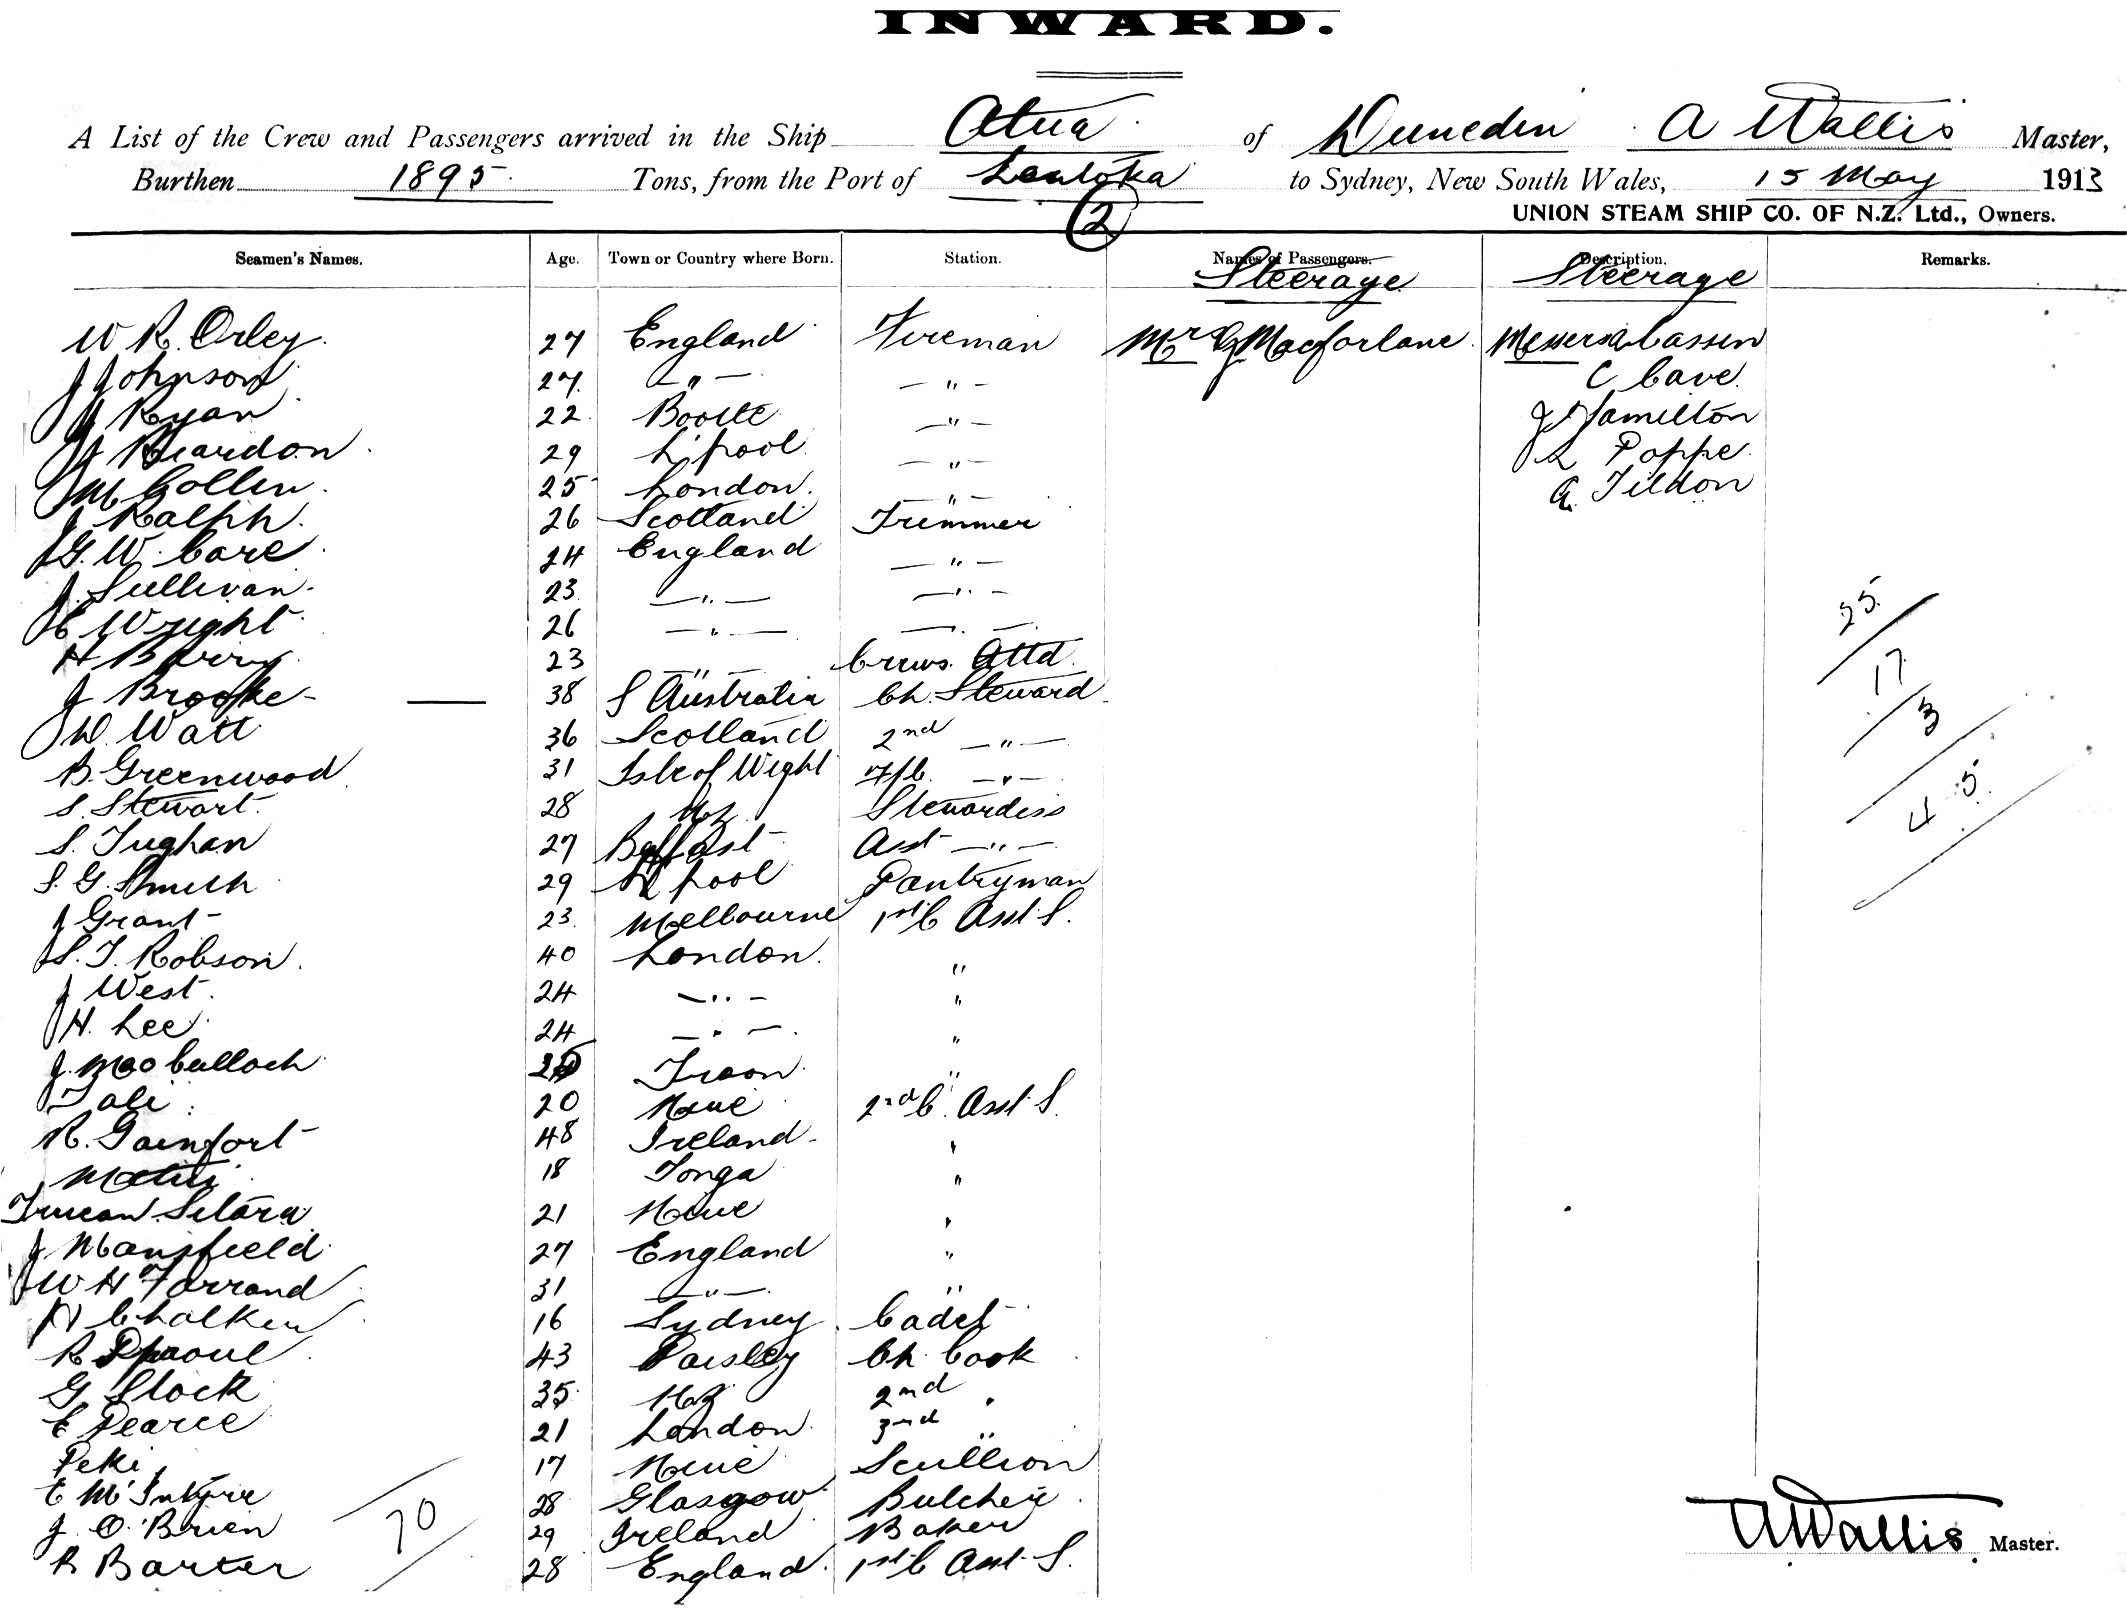 INWARD.
A List of the Crew and Passengers arrived in the Ship Atua of Dunedin A Wallis Master,
Burthen 1895 Tons, from the Port of Lautoka to Sydney, New South Wales, 15 May 1913
UNION STEAM SHIP CO. OF N.Z. Ltd., Owners.
2
Seamen's Names. Age. Town or Country where Born. Station. Names of Passengers. Description. Remarks.
Steerage Steerage
W R. Orley 27 England Fireman Mr G Macforlane Messrs Cassen
J Johnson 27 — " — — " — C Cave
J Ryan 22 Bootle — " — J Hamilton
J Reardon 29 L'pool — " — L Poppe
M Gollen 25 London — " — A. Tildon
J Ralph 26 Scotland Trimmer
G. W. Care 24 England — " —
J. Sullivan 23 — " — — " —
E Wright 26 — " — — " —
H Barry 23 — " — Crews Attd
J Brooke — 38 S Australia Ch. Steward
W. Watt 36 Scotland 2nd — " —
B. Greenwood 31 Isle of Wight F/C. — " —
S. Stewart 28 NZ Stewardess
S. Tughan 27 Belfast Asst — " —
S. G. Smith 29 L'pool Pantryman
J Grant 23 Melbourne 1st C Asst S.
S. T. Robson 40 London "
J West 24 — " — "
H. Lee 24 — " — "
J. MacCulloch Troon "
Tali 20 Niue 2nd C. Asst S.
R. Gainfort 48 Ireland "
18 Tonga "
21 Niue "
J Mansfield 27 England "
W H Farrand 31 — " — "
H Chalken 16 Sydney Cadet
R 43 Paisley Ch. Cook
G Slock 35 NZ 2nd "
E Pearce 21 London 3rd "
Peki 17 Niue Scullion
E McIntyre 28 Glasgow Butcher
J. O'Brien 29 Ireland Baker
R Barter 28 England 1st C Asst S.
70
25
17
3
45
AWallis Master.